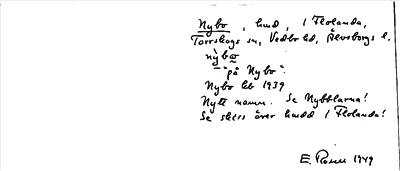 Nybo, hmd, i Tholanda,
Torrskogs sn, Vedbo hd, Älvsborgs l.
nỳbω
"på Nybo".
Nybo lb 1939
Nytt namn. Se Nybblarna!
Se skiss över hmdd i Tholanda!
E. Rosell 1949